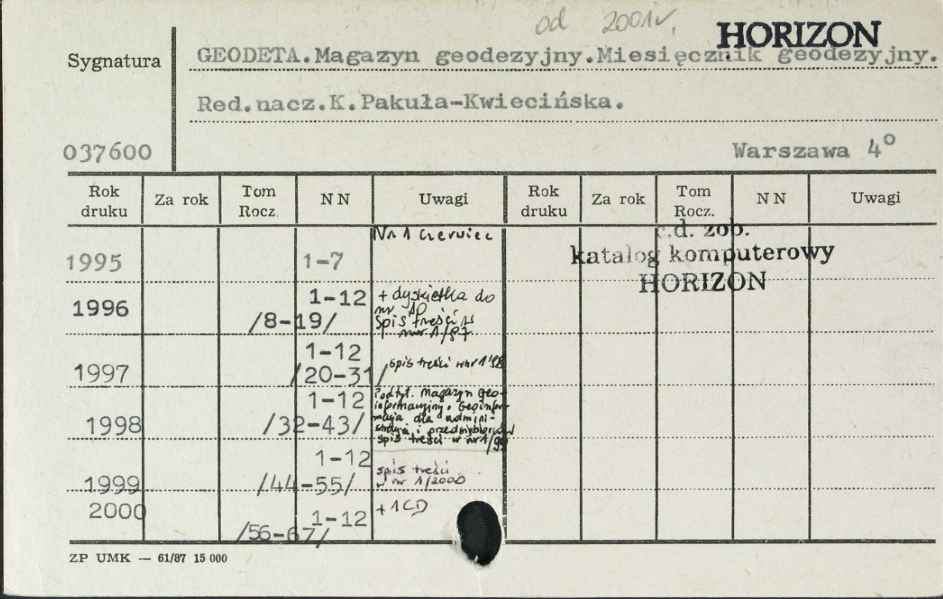 od 2001r. HORIZON
Sygnatura GEODETA.Magazyn geodezyjny.Miesięcznik geodezyjny.
Red.nacz.K.Pakuła-Kwiecińska.
037600 Warszawa 4°
Rok druku Za rok Tom Rocz. NN Uwagi Rok druku Za rok Tom Rocz. NN Uwagi
Nr 1 czerwiec
1995 1-7
c.d. zob.
katalog komputerowy
HORIZON
1996 1-12 + dyskietka do
nr 10
/8-19/ spis treści w
nr 1/97
1997 1-12
/20-31 spis treści w nr 1'98
1998 1-12 Podtyt. Magazyn geo-
informacyjny. Geoinfor-
macja dla admini-
/32-43/ stracji i przedsiębiorców
spis treści w nr 1/99
1999 1-12 spis treści
/44-55/ w nr 1/2000
2000 1-12 + 1CD
/56-67/
ZP UMK — 61/87 15 000